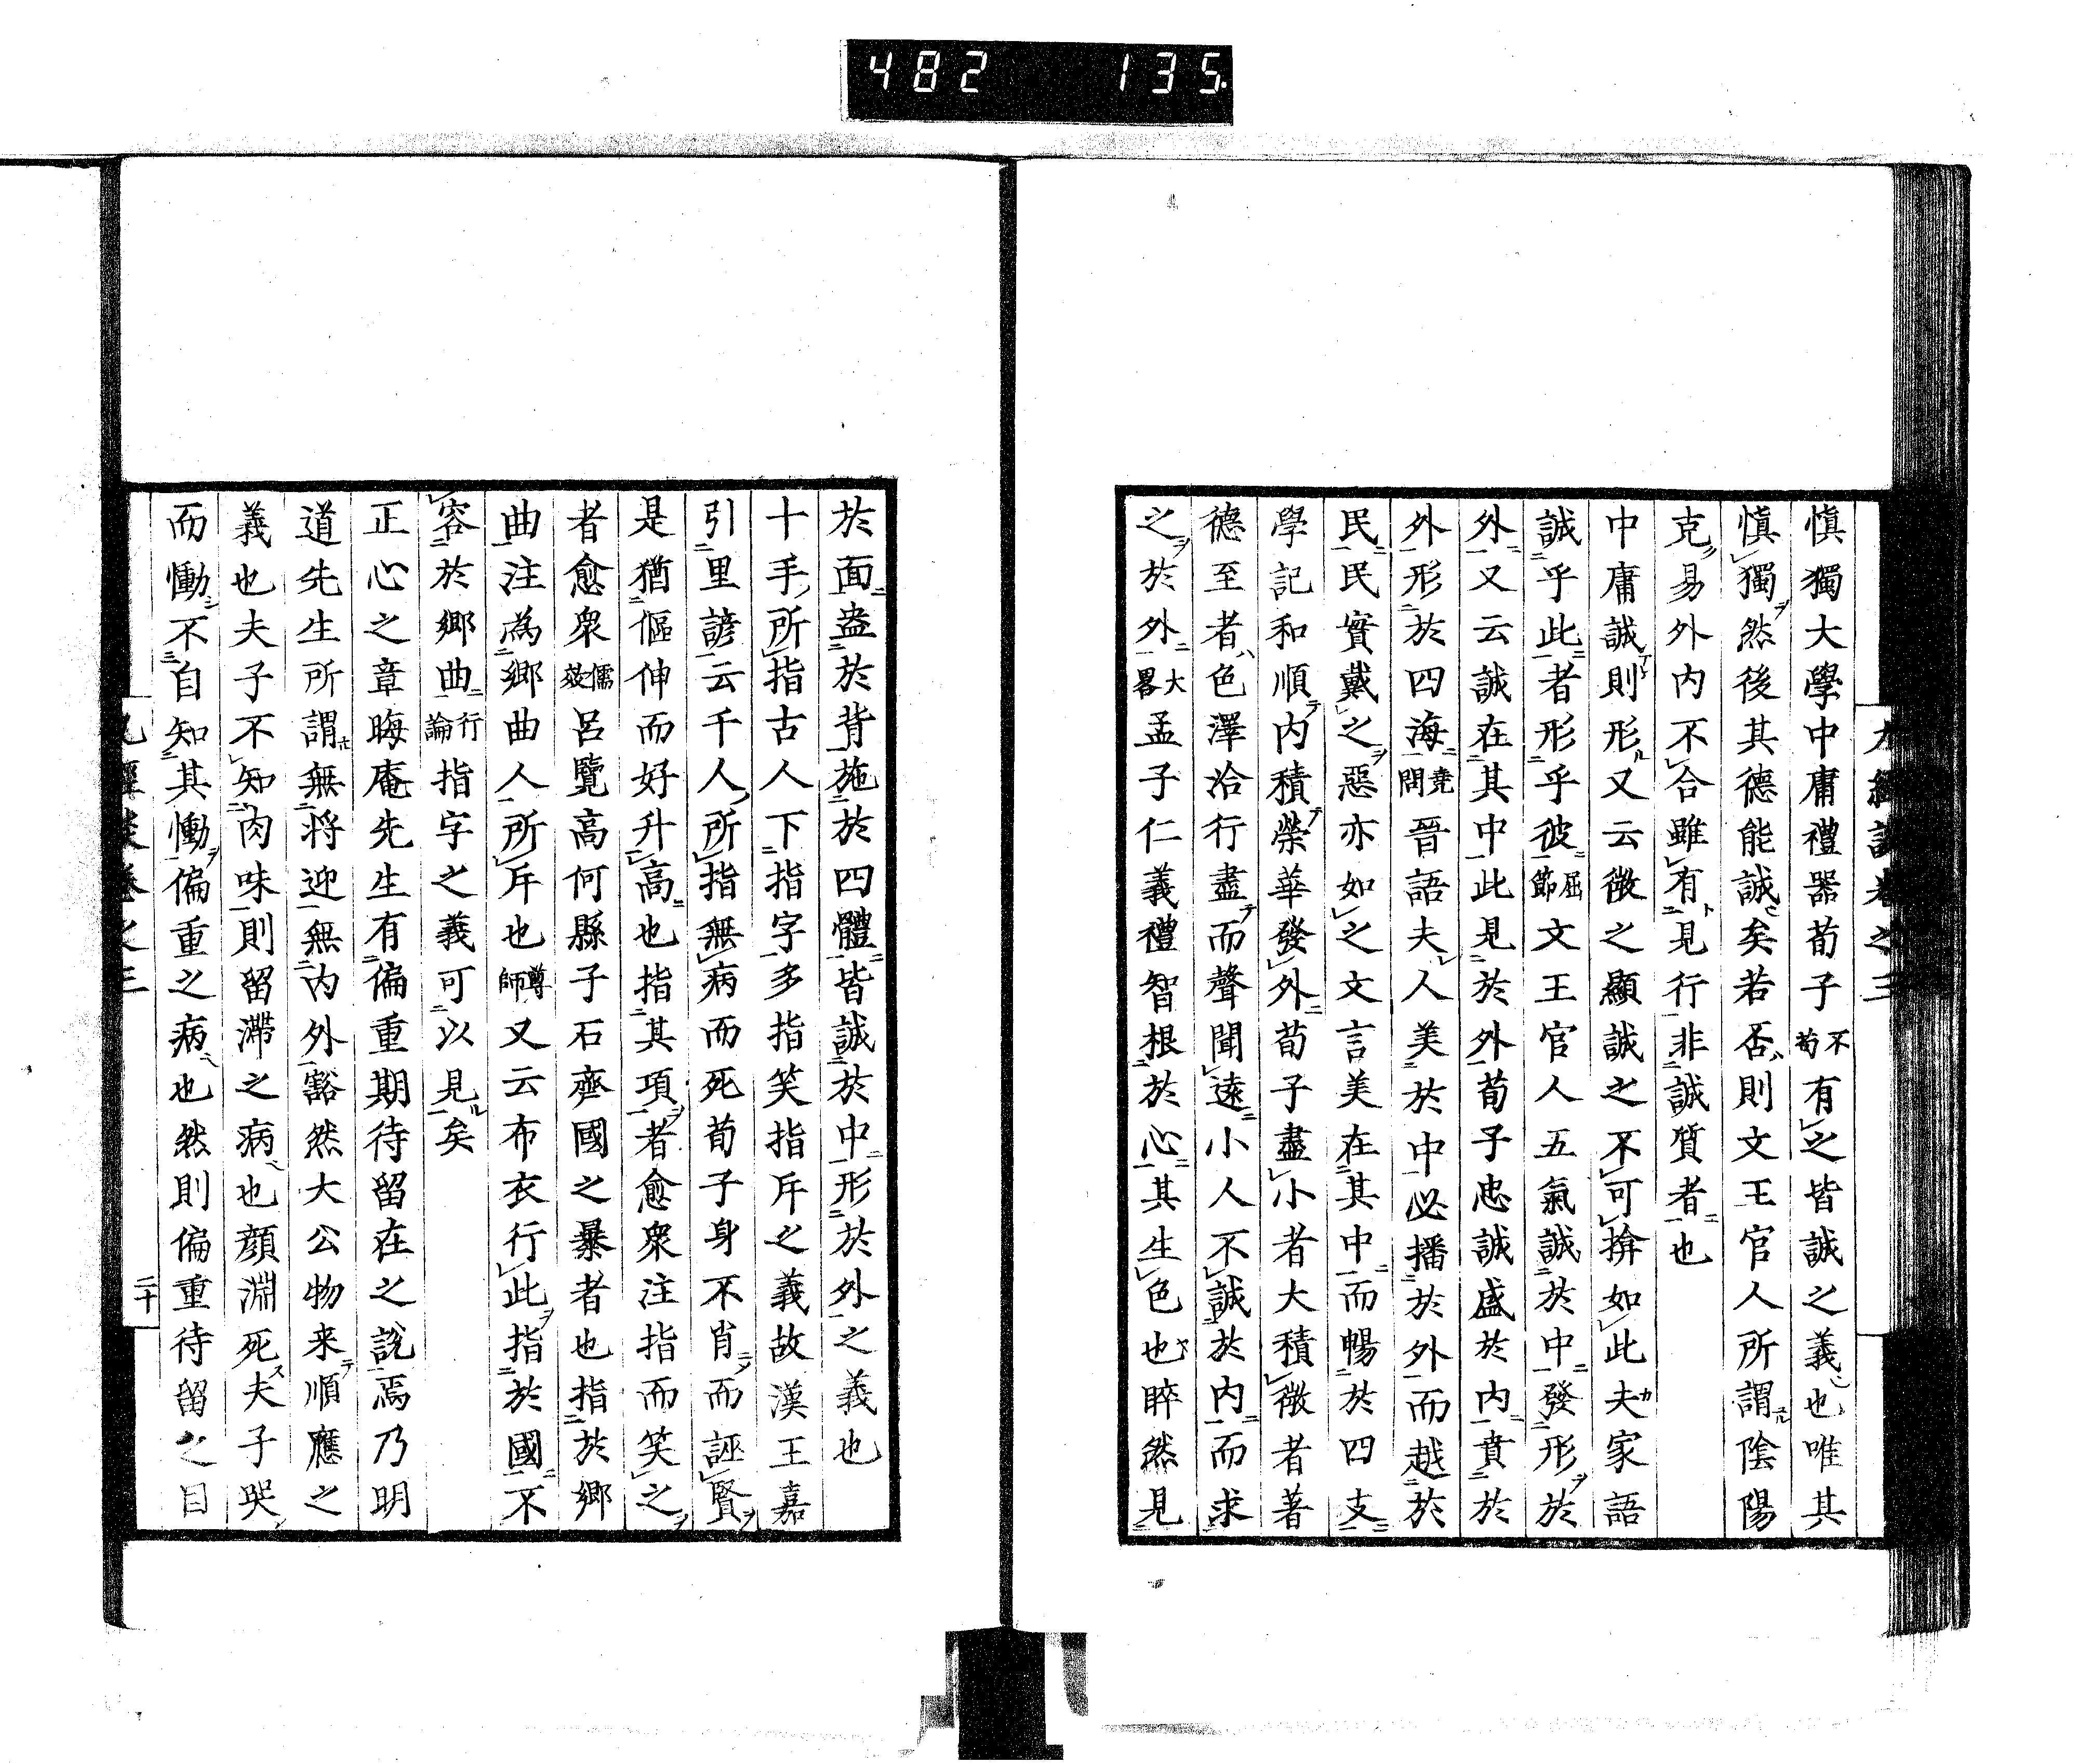 482 135
九經談卷之三
慎獨大學中庸禮器荀子不苟有之皆誠之義也唯其
慎獨然後其德能誠矣若否則文王官人所謂陰陽
克易外内不合雖有見行非誠質者也
中庸誠則形又云微之顯誠之不可揜如此夫家語
誠乎此者形乎彼屈節文王官人五氣誠於中發形於
外又云誠在其中此見於外荀子忠誠盛於内賁於
外形於四海堯問晉語夫人美於中必播於外而越於
民民實戴之惡亦如之文言美在其中而暢於四支
學記和順内積榮華發外荀子盡小者大積微者著
德至者色澤洽行盡而聲聞遠小人不誠於内而求
之於外大畧孟子仁義禮智根於心其生色也睟然見
於面盎於背施於四體皆誠於中形於外之義也
十手所指古人下指字多指笑指斥之義故漢王嘉
引里諺云千人所指無病而死荀子身不肖而誣賢
是猶傴伸而好升高也指其項者愈衆注指而笑之
者愈衆儒效呂覽高何縣子石齊國之暴者也指於鄉
曲注為鄉曲人所斥也尊師又云布衣行此指於國不
容於鄉曲行論指字之義可以見矣
正心之章晦庵先生有偏重期待留在之說焉乃明
道先生所謂無将迎無内外豁然大公物来順應之
義也夫子不知肉味則留滯之病也顔淵死夫子哭
而慟不自知其慟偏重之病也然則偏重待留之目
九經談卷之三
二十